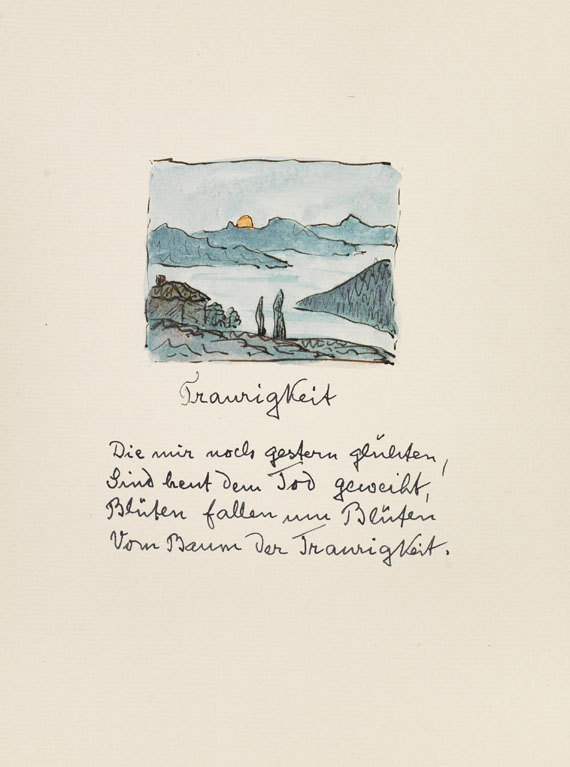 Traurigkeit
Die mir noch gestern glühten,
Sind heut dem Tod geweiht,
Blüten fallen um Blüten
Vom Baum der Traurigkeit.